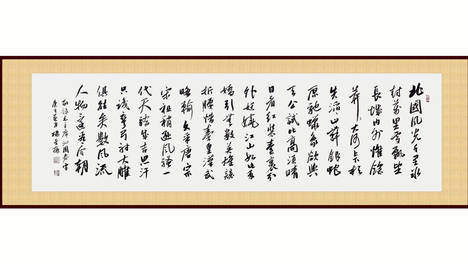 北國風光千里冰
封萬里雪飄望
長城內外惟餘
莽大河上下
失滔山舞銀蛇
原馳蠟象欲與
天公試比高須晴
日看紅裝素裹分
外妖嬈江山如此多
嬌引無數英雄競
折腰惜秦皇漢武
略輸文采唐宗
宋祖稍遜風騷一
代天驕成吉思汗
只識彎弓射大雕
俱往矣數風流
人物還看今朝
敬錄毛主席沁園春雪